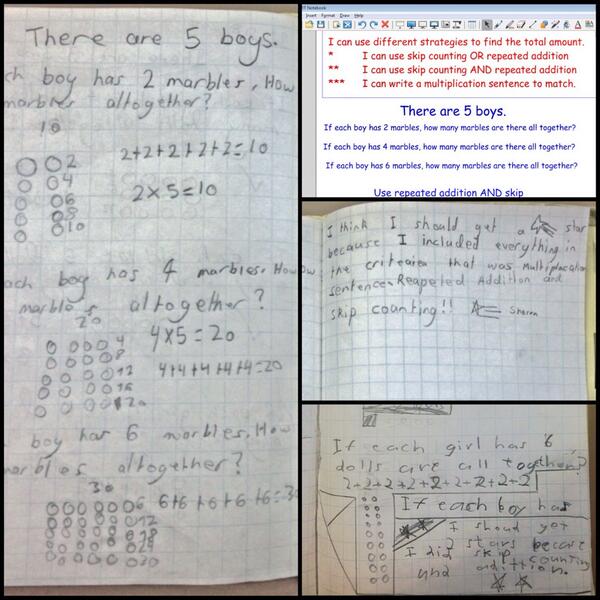 There are 5 boys.
ch boy has 2 marbles, How
marbles altogether?
10
2
4
6
8
10
2+2+2+2+2=10
2×5=10
ach boy has 4 marbles. How
marbles altogether?
20
4
8
12
16
20
4×5=20
4+4+4+4+4=20
boy has 6 marbles. How
marbles altogether?
30
6
12
18
24
30
6+6+6+6+6=30
Notebook
Insert Format Draw Help
I can use different strategies to find the total amount.
* I can use skip counting OR repeated addition
** I can use skip counting AND repeated addition
*** I can write a multiplication sentence to match.
There are 5 boys.
If each boy has 2 marbles, how many marbles are there all together?
If each boy has 4 marbles, how many marbles are there all together?
If each boy has 6 marbles, how many marbles are there all together?
Use repeated addition AND skip
I think I should get a star
because I included everything in
the criteaiea that was multiplacation
sentence. Reapeted Addition and
skip counting!!
If each girl has 6,
dolls are all together?
2+2+2+2+2+2+2+2+2
If each boy has
I should get
2 stars because
I did skip counting
and addition.